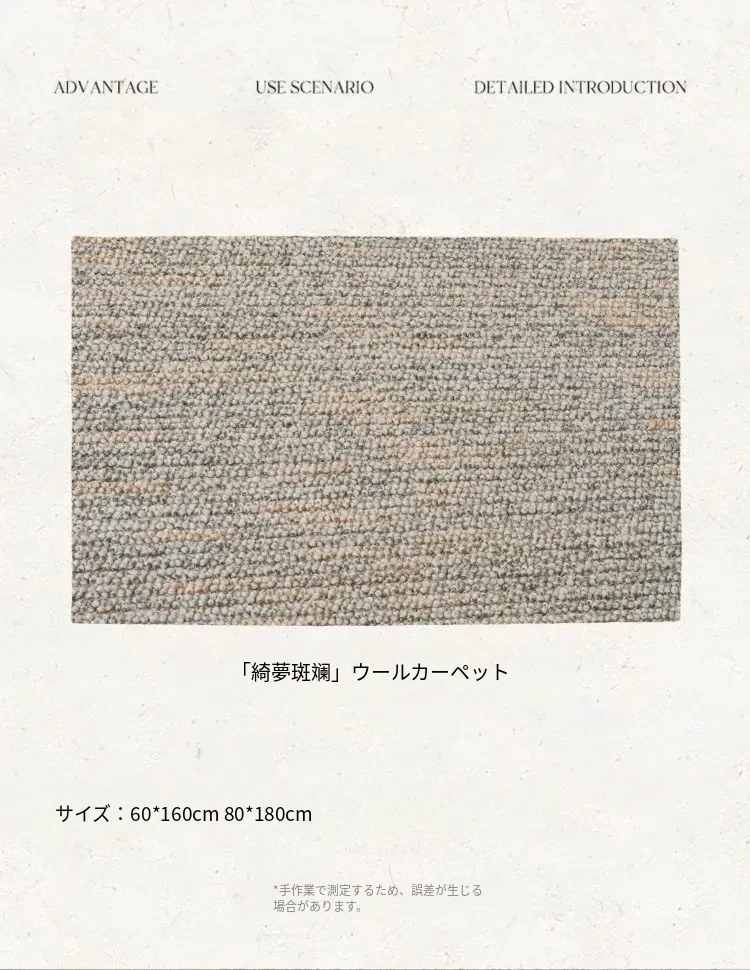 ADVANTAGE USE SCENARIO DETAILED INTRODUCTION
「綺夢斑斓」ウールカーペット
サイズ：60*160cm 80*180cm
*手作業で測定するため、誤差が生じる
場合があります。